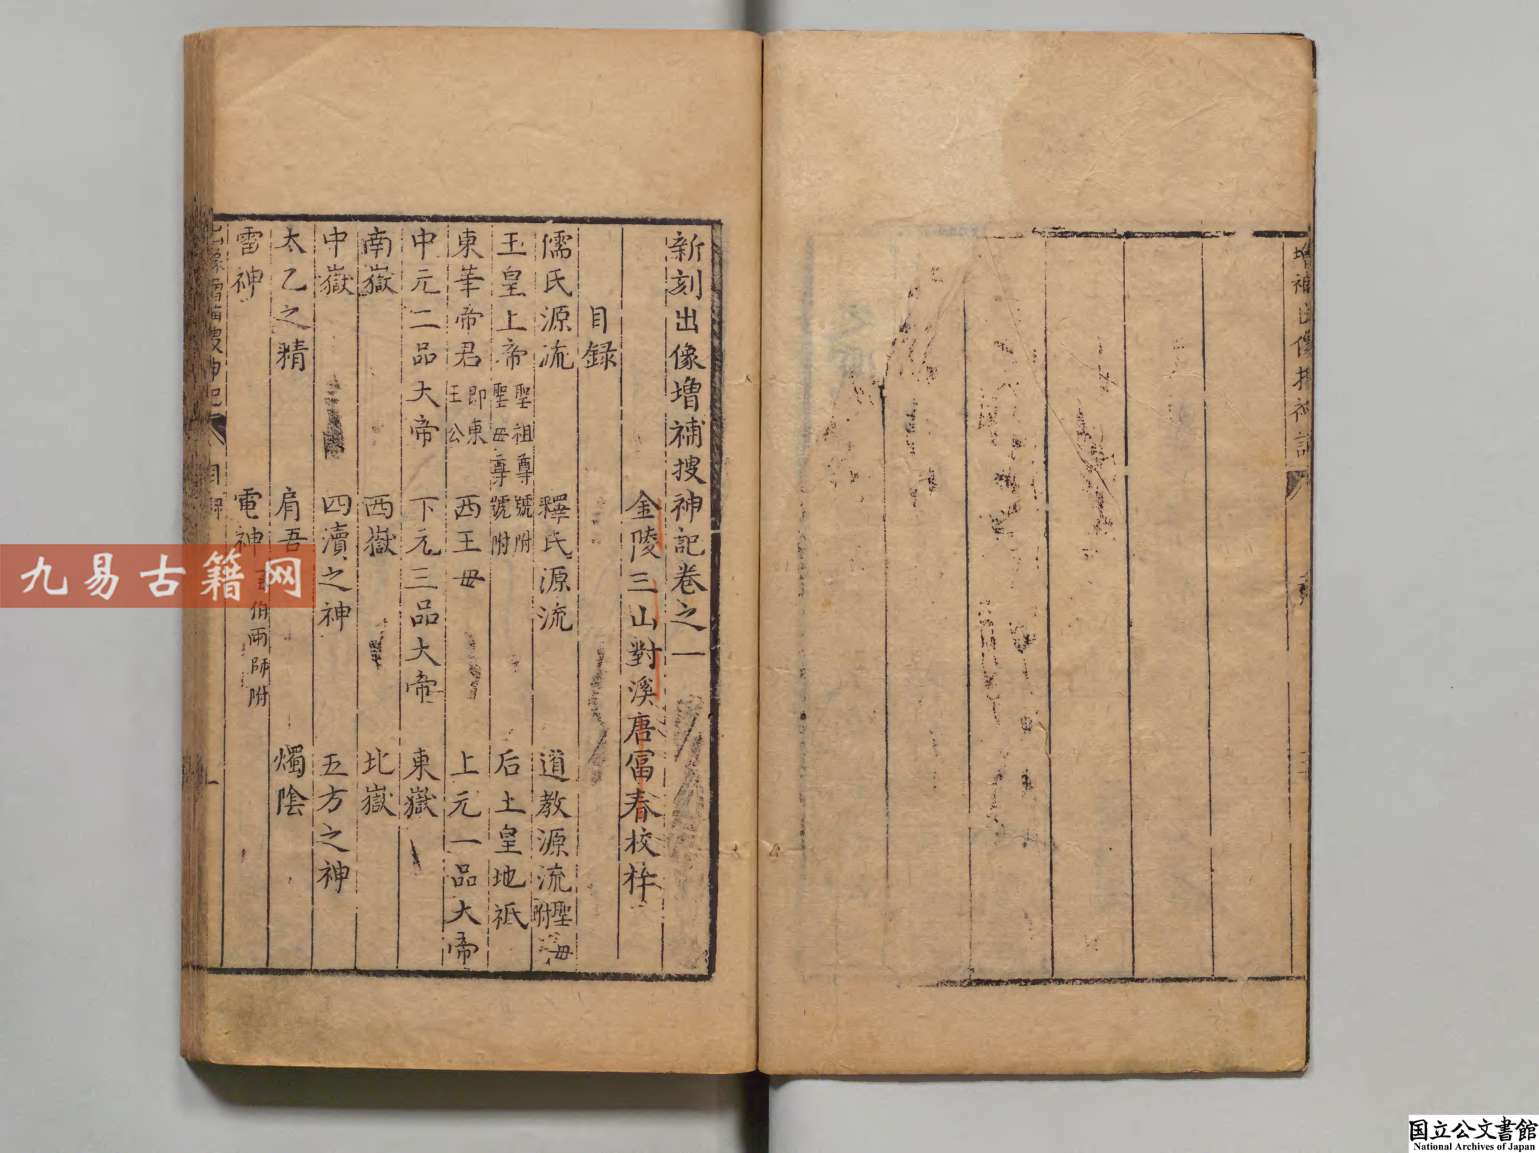 增補出像搜神記
新刻出像增補搜神記卷之一
金陵三山對溪唐富春校梓
目録
儒氏源流 釋氏源流 道教源流聖母附
玉皇上帝聖祖尊號附聖母尊號附 后土皇地祇
東華帝君即東王公 西王母 上元一品大帝
中元二品大帝 下元三品大帝 東嶽
南嶽 西嶽 北嶽
中嶽 四瀆之神 五方之神
太乙之精 肩吾 燭陰
雷神 電神 伯雨師附
像增補搜神記 目録 一
九易古籍网
国立公文書館
National Archives of Japan